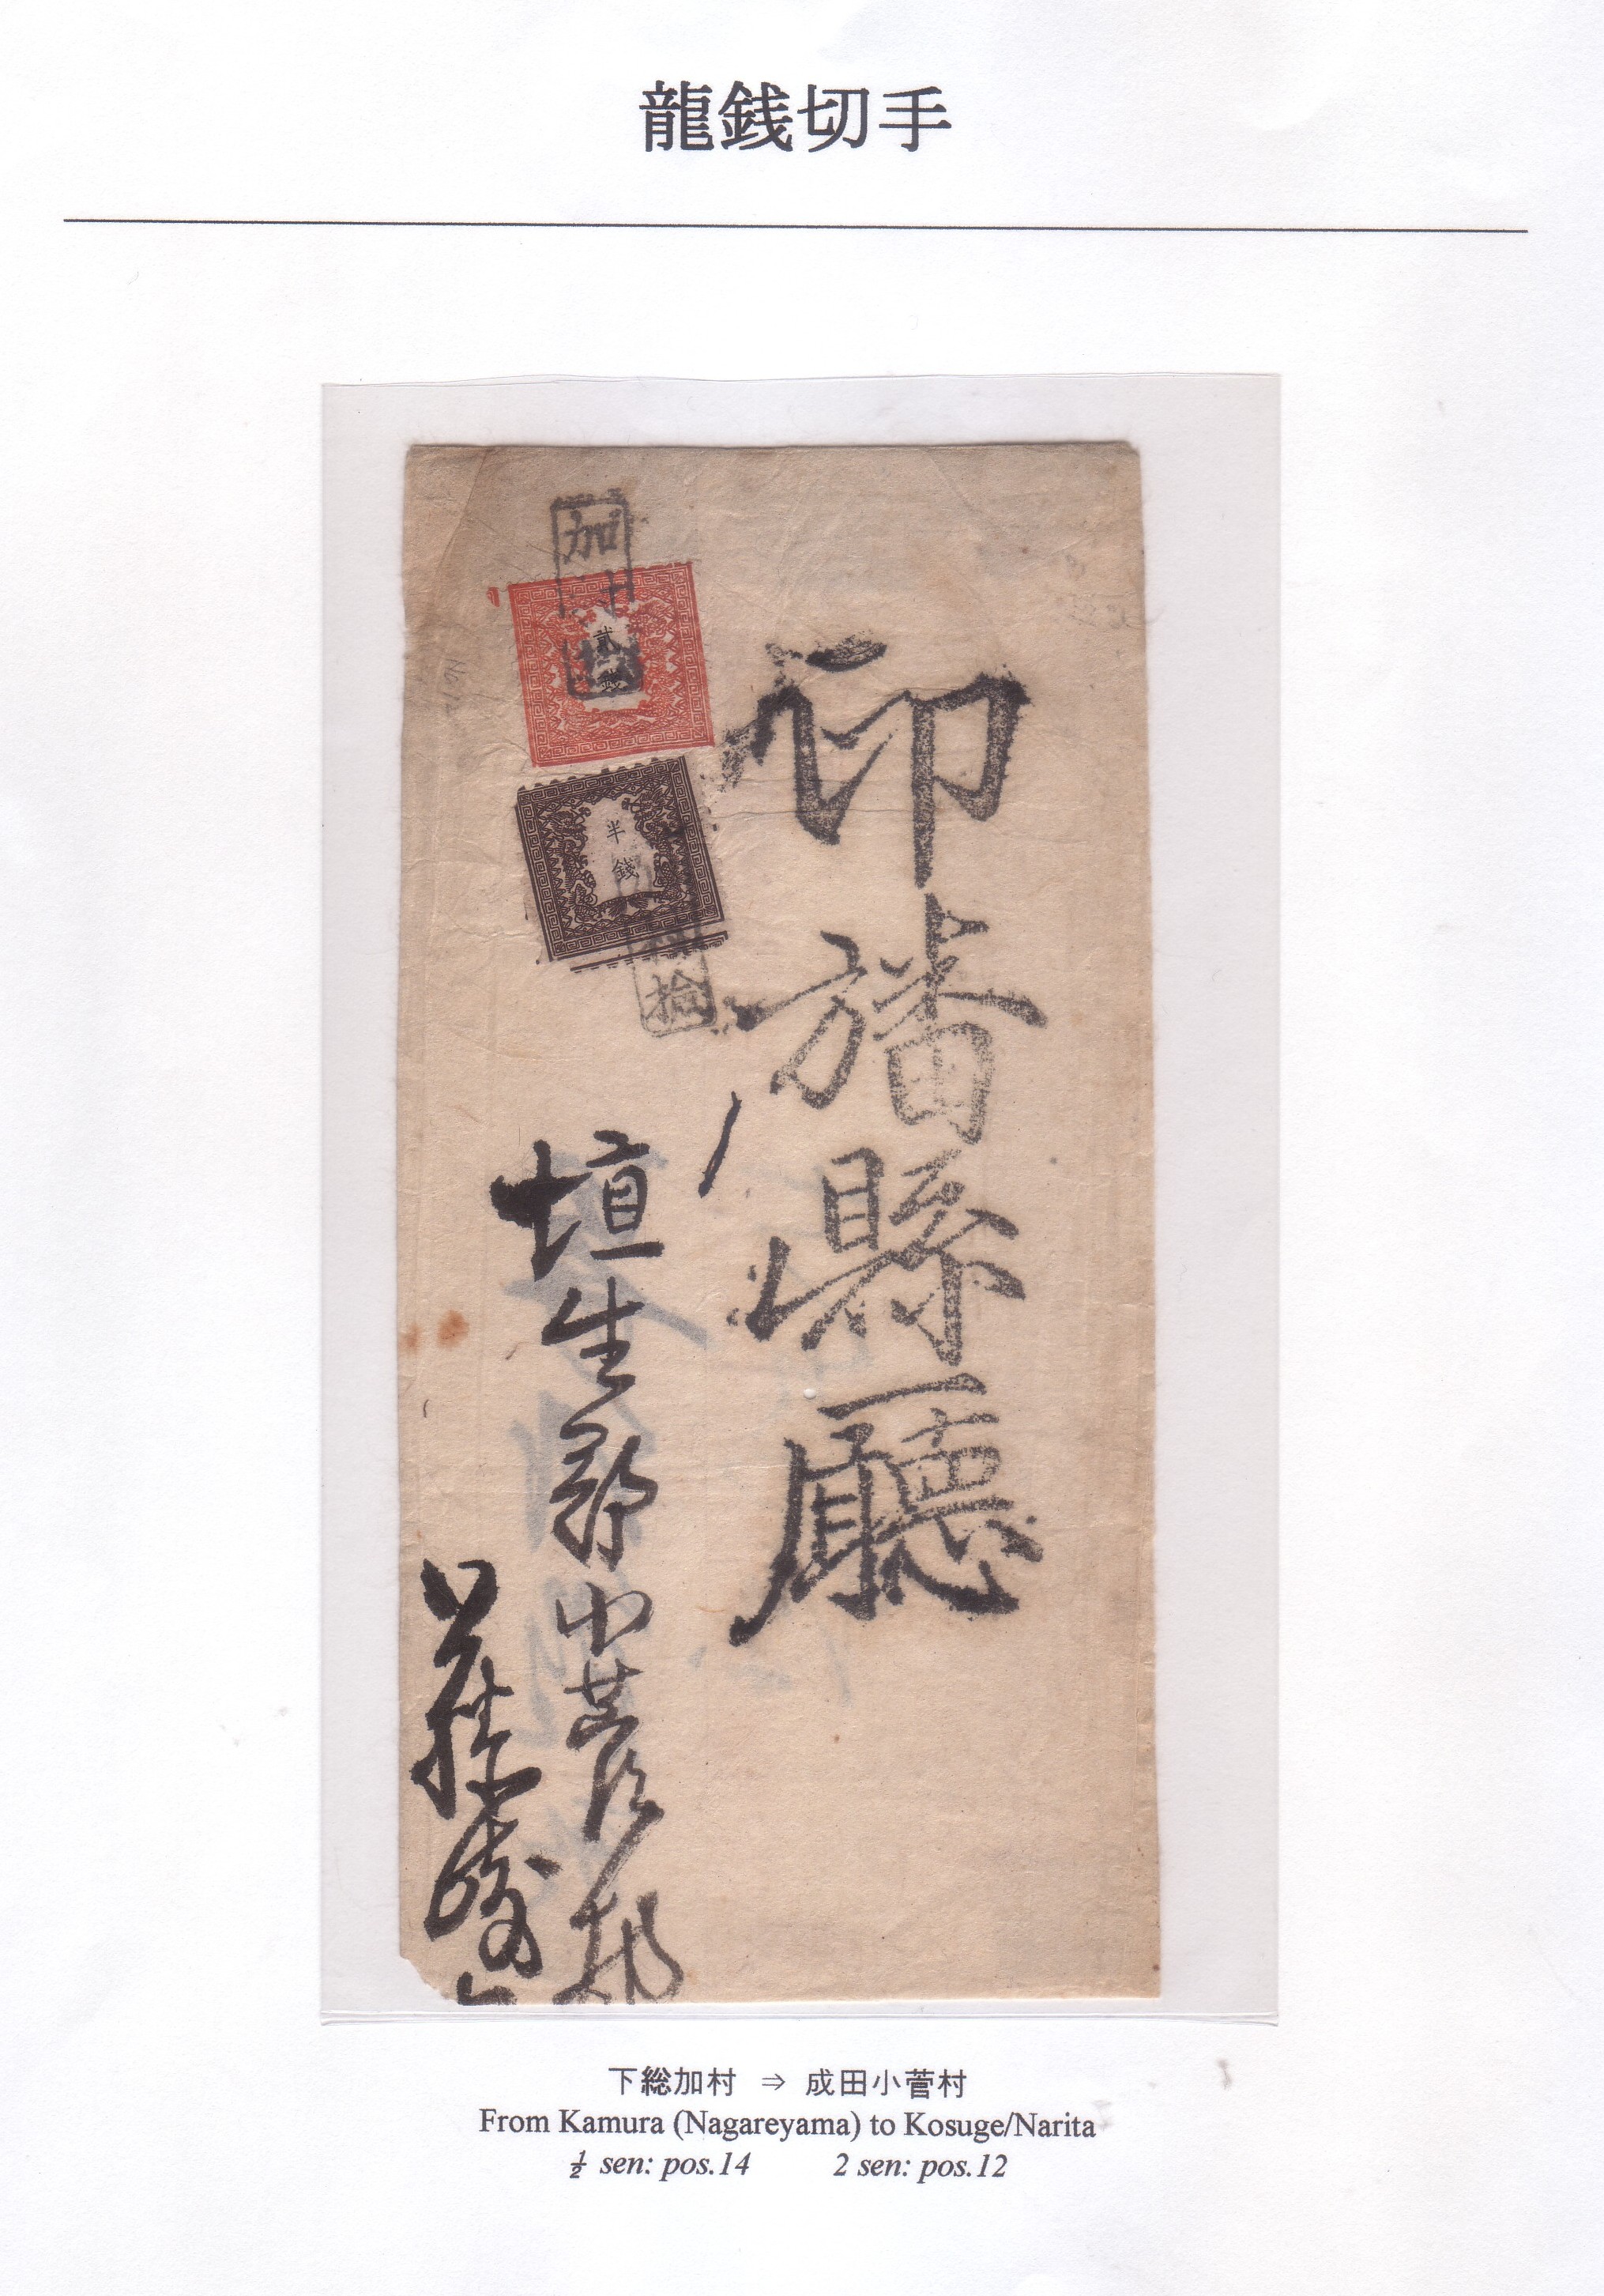 龍銭切手
加村
貳錢
半錢
檢
印旛縣廳
埴生郡小菅村
下総加村 ⇒ 成田小菅村
From Kamura (Nagareyama) to Kosuge/Narita
½ sen: pos.14 2 sen: pos.12